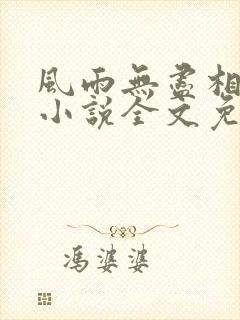 風雨無盡相
小說全文免
馮婆婆